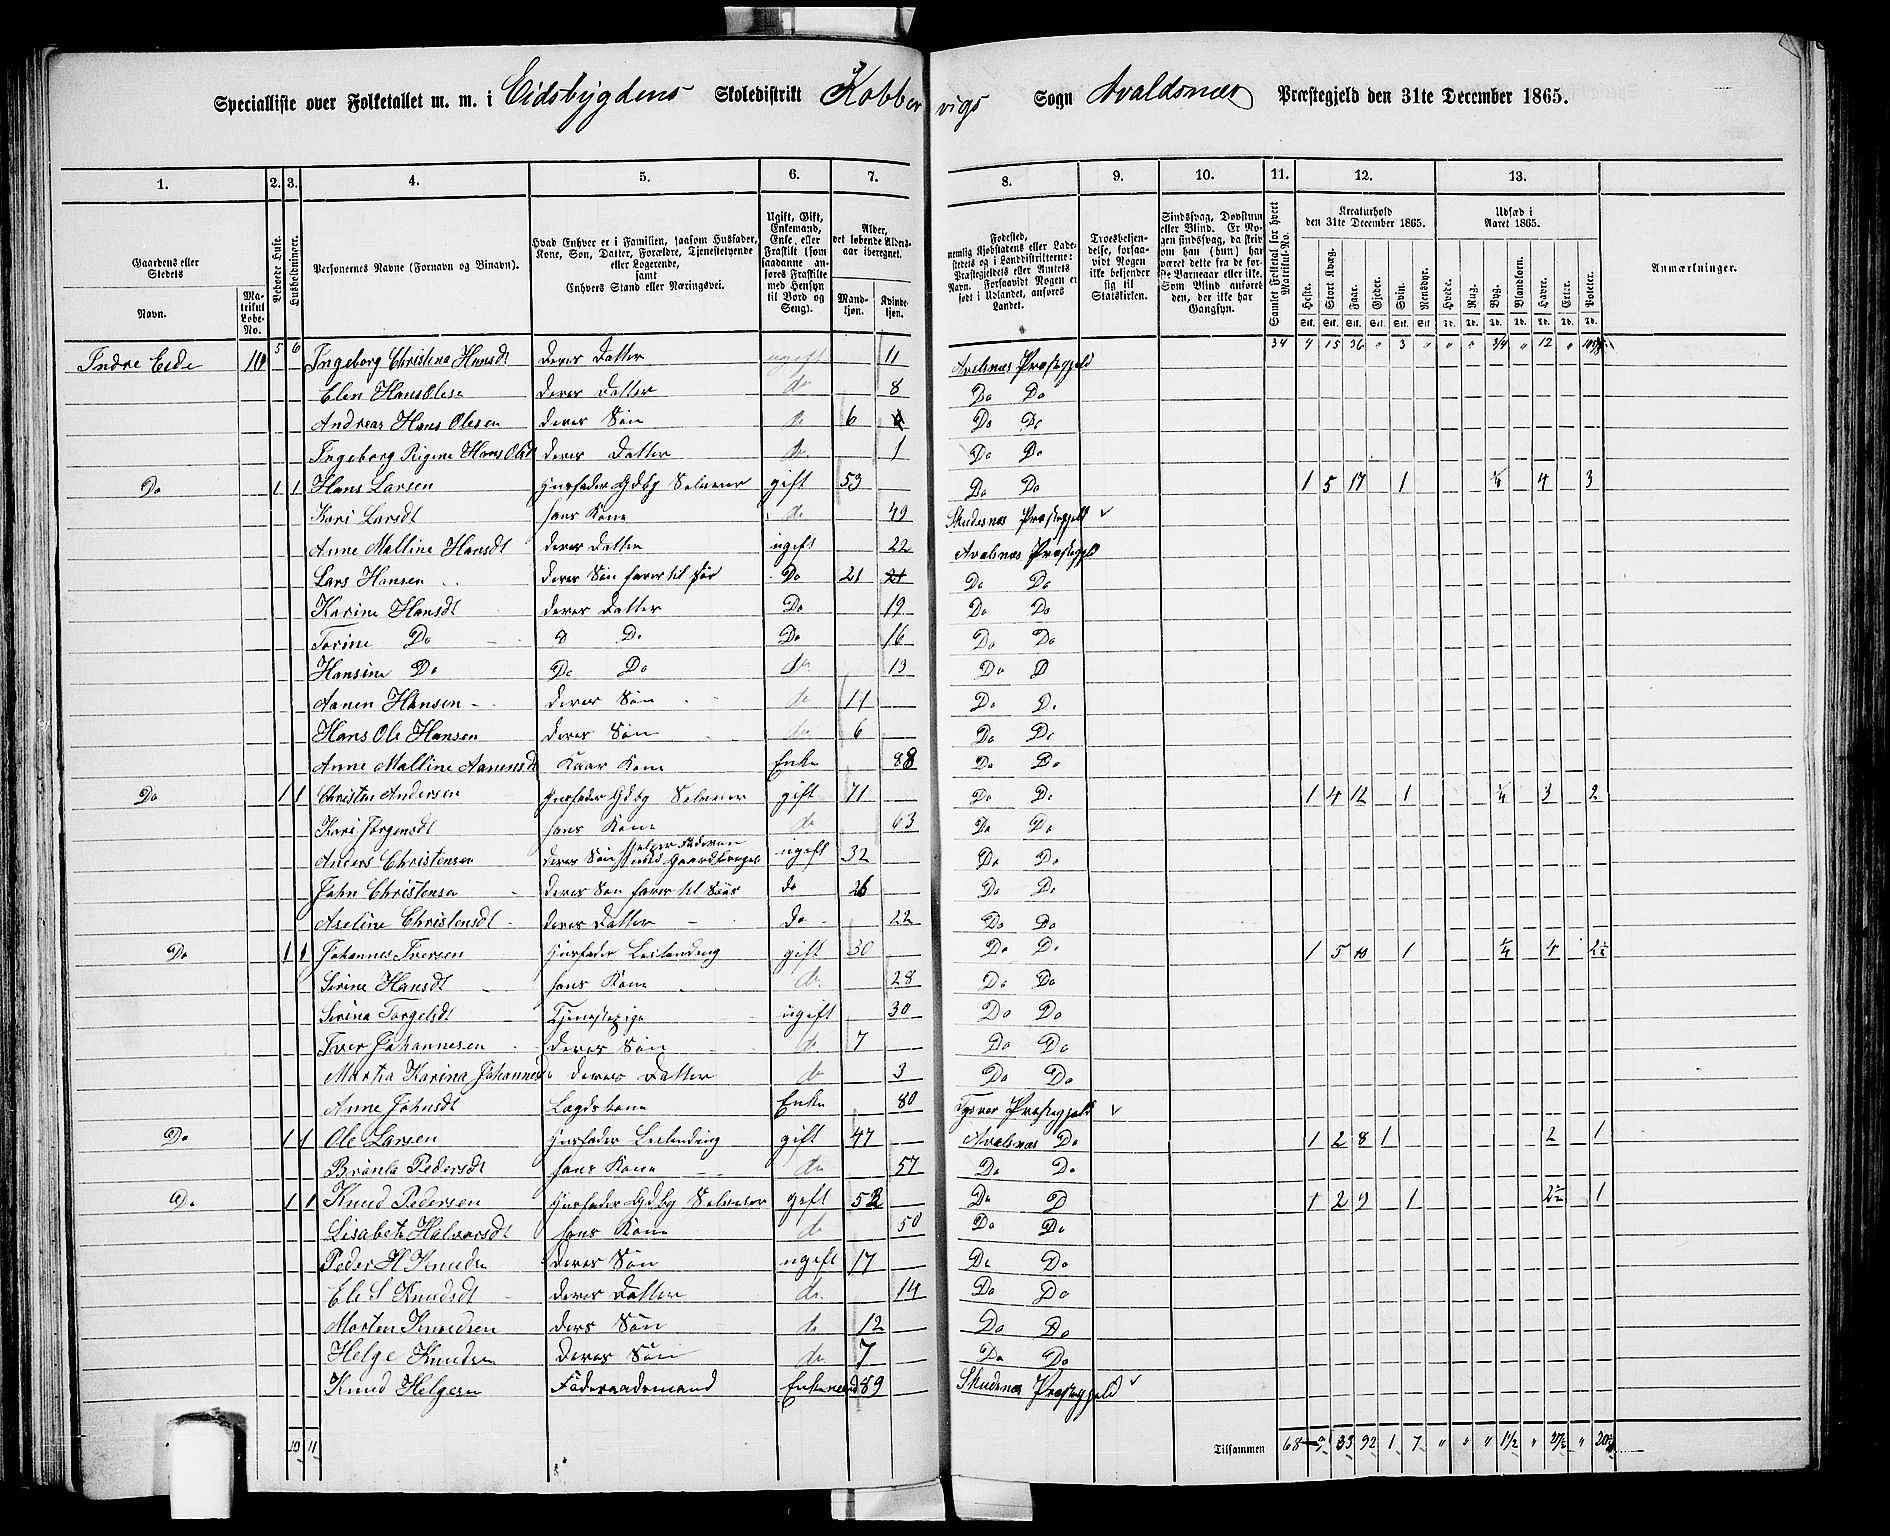 Specialliste over Folketallet m. m. i Eidsbygdens Skoledistrikt Kobbervigs Sogn Avaldsnæs Præstegjeld den 31te December 1865.
1. 2. 3. 4. 5. 6. 7. 8. 9. 10. 11. 12. 13.
Gaardens eller Stedets
Navn. Matrikul Løbe-No.
Beboede Huse.
Husholdninger.
Personernes Navne (Fornavn og Binavn).
Hvad Enhver er i Familien, saasom Husfader, Kone, Søn, Datter, Forældre, Tjenestetyende eller Logerende, samt Enhvers Stand eller Næringsvei.
Ugift, Gift, Enkemand, Enke, eller Fraskilt (som saadanne anføres Fraskilte med Hensyn til Bord og Seng).
Alder, det løbende Alders-aar iberegnet.
Mandkjøn. Kvindekjøn.
Fødested, nemlig Kjøbstadens eller Ladestedets og i Landdistrikterne: Præstegjeldets eller Amtets Navn. Forsaavidt Nogen er født i Udlandet, anføres Landet.
Troesbekjendelse, forsaavidt Nogen ikke bekjender sig til Statskirken.
Sindssvag, Døvstum eller Blind. Er Nogen sindssvag, da skrives om han (hun) har været dette fra de første Barneaar eller ikke. Som Blind anføres den, der ikke har Gangsyn.
Samlet Folketal for hvert Matrikul-No.
Kreaturhold den 31te December 1865.
Heste. Stort Kvæg. Faar. Gjeder. Svin. Rensdyr.
Udsæd i Aaret 1865.
Hvede. Rug. Byg. Blandkorn. Havre. Erter. Poteter.
Anmærkninger.
5 6 34 4 15 36 " 3 " " " 3/4 " 12 "
Indre Eide 10 Ingeborg Christena Hansdt deres Datter ugift 11 Avalsnæs Præstegjeld
Elen HansOlesen deres Datter do 8 Do Do
Andreas Hans Olesen deres Søn do 6 Do Do
Ingeborg Rigine Hans Olsdt deres Datter do 1 Do Do
Do 1 1 Hans Larsen Husfader Gdbg Selveier gift 53 Do Do 1 5 17 1 1/4 4 3
Kari Larsdt hans Kone do 49 Skudesnæs Præstegjeld ✓
Anne Malline Hansdt deres Datter ugift 22 Avalsnæs Præstegjeld
Lars Hansen deres Søn farer til Sør Do 21 21 Do Do
Karine Hansdt deres Datter Do 19 Do Do
Torine Do D Do Do 16 Do Do
Hansine Do Do Do do 13 Do D
Aanen Hansen deres Søn do 11 Do Do
Hans Ole Hansen deres Søn do 6 Do Do
Anne Malline Aanensdt Kaar Kone Enke 88 Do Do
Do 1 1 Christen Andersen Husfader Gdbg Selveier gift 71 Do Do 1 4 12 1 1/4 3 2
Kari Jørgensdt hans Kone do 63 Do Do
Anders Christensen deres Søn hjelper Faderen med Gaardbruget ugift 32 Do Do
John Christensen deres Søn farer til Søes do 26 Do Do
Aseline Christensdt deres Datter do 22 Do Do
Do 1 1 Johannes Iversen Husfader Leilending gift 30 Do Do 1 5 10 1 1/4 4 2½
Serine Hansdt hans Kone do 28 Do Do
Serina Torgelsdt Tjenestepige ugift 30 Do Do
Iver Johannesen deres Søn do 7 Do Do
Martha Karina Johannesd deres Datter do 3 Do Do
Anne Johnsdt Lægdskone Enke 80 Tysvær Præstegjeld ✓
Do 1 1 Ole Larsen Husfader Leilending gift 47 Avalsnæs Do 1 2 8 1 2 1
Brünla Pedersdt hans Kone do 57 Do Do
Do 1 1 Knud Pedersen Husfader Gdbg Selveier gift 52 Do D 1 2 9 1 2½ 1
Lisabeth Halvorsdt hans Kone do 50 Do Do
Peder H Knudsen deres Søn ugift 17 Do Do
Eli S Knudsdt deres Datter do 14 Do Do
Morten Knudsen ders Søn do 12 Do Do
Helge Knudsen deres Søn do 7 Do Do
Knud Helgesen Føderaadsmand Enkemand 89 Skudesnæs Præstegjeld ✓
10 11 Tilsammen 68 9 33 92 1 7 " " " 1½ " 27½ "